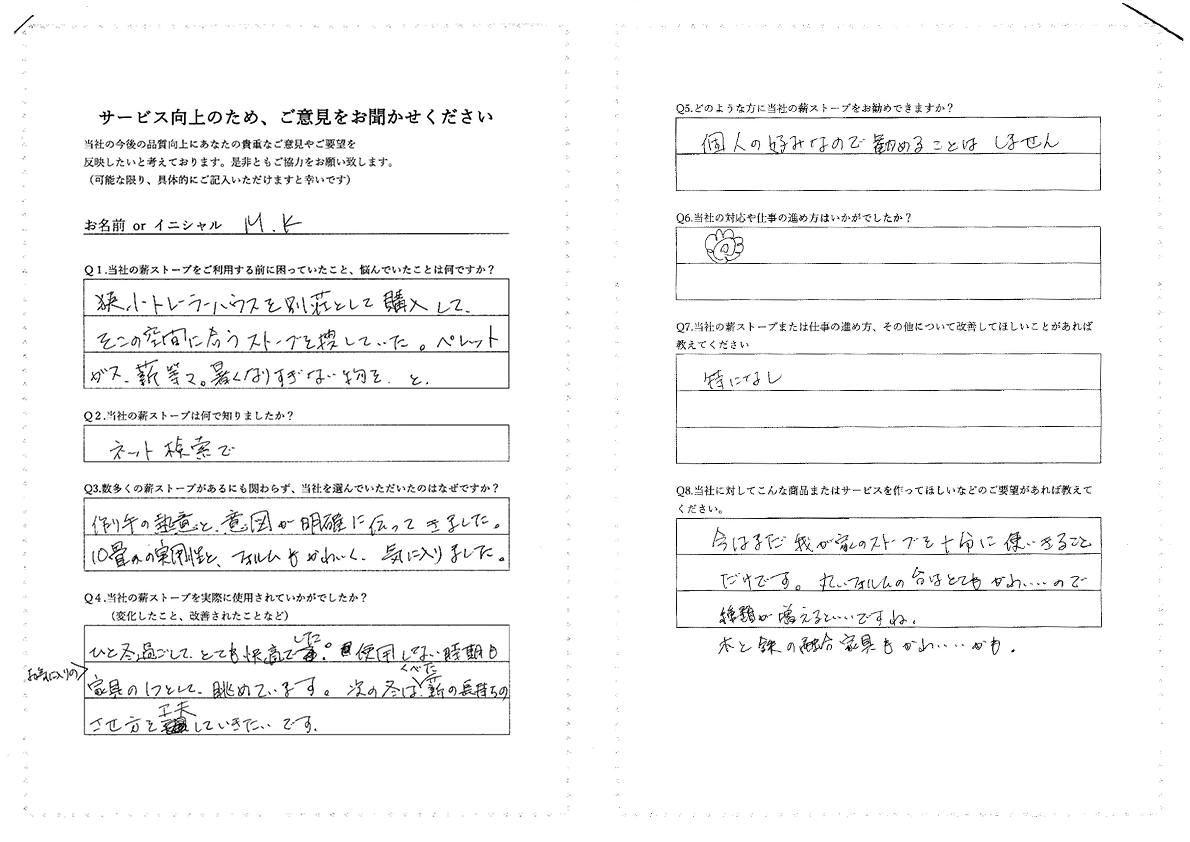 サービス向上のため、ご意見をお聞かせください
当社の今後の品質向上にあなたの貴重なご意見やご要望を
反映したいと考えております。是非ともご協力をお願い致します。
（可能な限り、具体的にご記入いただけますと幸いです）
お名前 or イニシャル M.K
Q1.当社の薪ストーブをご利用する前に困っていたこと、悩んでいたことは何ですか？
狭小トレーラーハウスを別荘として購入して、
そこの空間に合うストーブを捜していた。ペレット
ガス、薪等々。暑くなりすぎない物を、と、
Q2.当社の薪ストーブは何で知りましたか？
ネット検索で
Q3.数多くの薪ストーブがあるにも関わらず、当社を選んでいただいたのはなぜですか？
作り手の熱意と、意図が明確に伝ってきました。
10畳の実用性と、フォルムもかわいく、気に入りました。
Q4.当社の薪ストーブを実際に使用されていかがでしたか？
（変化したこと、改善されたことなど）
ひと冬過ごして、とても快適でした。使用しない時期も
お気に入りの家具の1つとして、眺めています。次の冬は、くべた薪の長持ちの
させ方を工夫していきたいです。
Q5.どのような方に当社の薪ストーブをお勧めできますか？
個人の好みなので勧めることはしません
Q6.当社の対応や仕事の進め方はいかがでしたか？
Q7.当社の薪ストーブまたは仕事の進め方、その他について改善してほしいことがあれば
教えてください
特になし
Q8.当社に対してこんな商品またはサービスを作ってほしいなどのご要望があれば教えて
ください。
今はまだ我が家のストーブを十分に使いきること
だけです。丸いフォルムの台はとてもかわいいので
種類が増えるといいですね。
木と鉄の融合家具もかわいいかも。